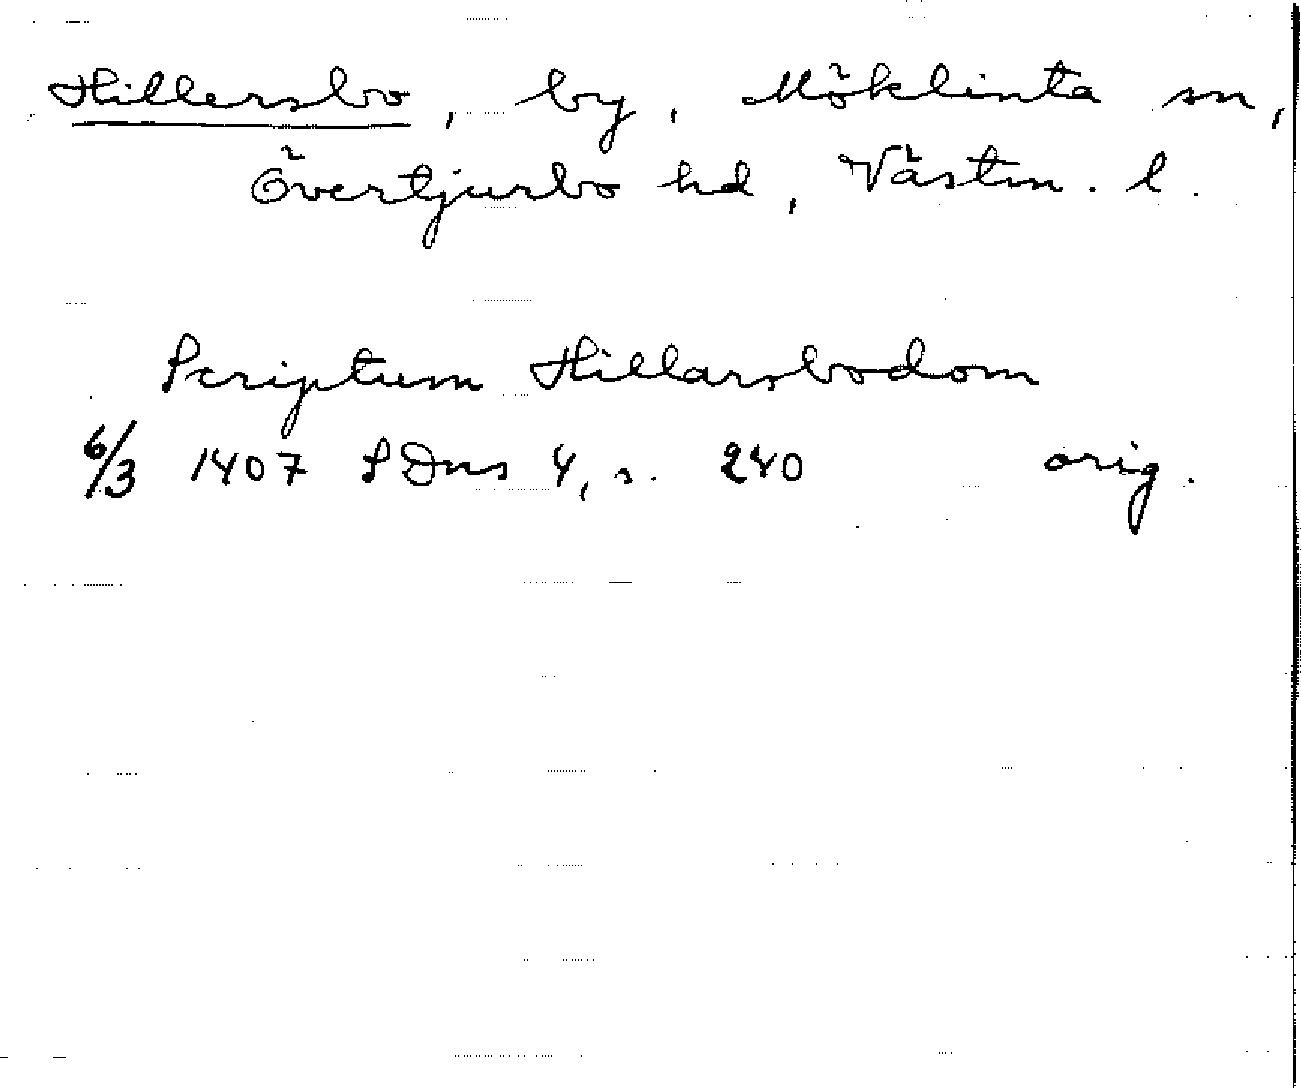 Hillersbo, by, Möklinta sn,
Övertjurbo hd, Västm. l.
Scriptum Hillarsbodom
6/3 1407 SDns 4, s. 240 orig.